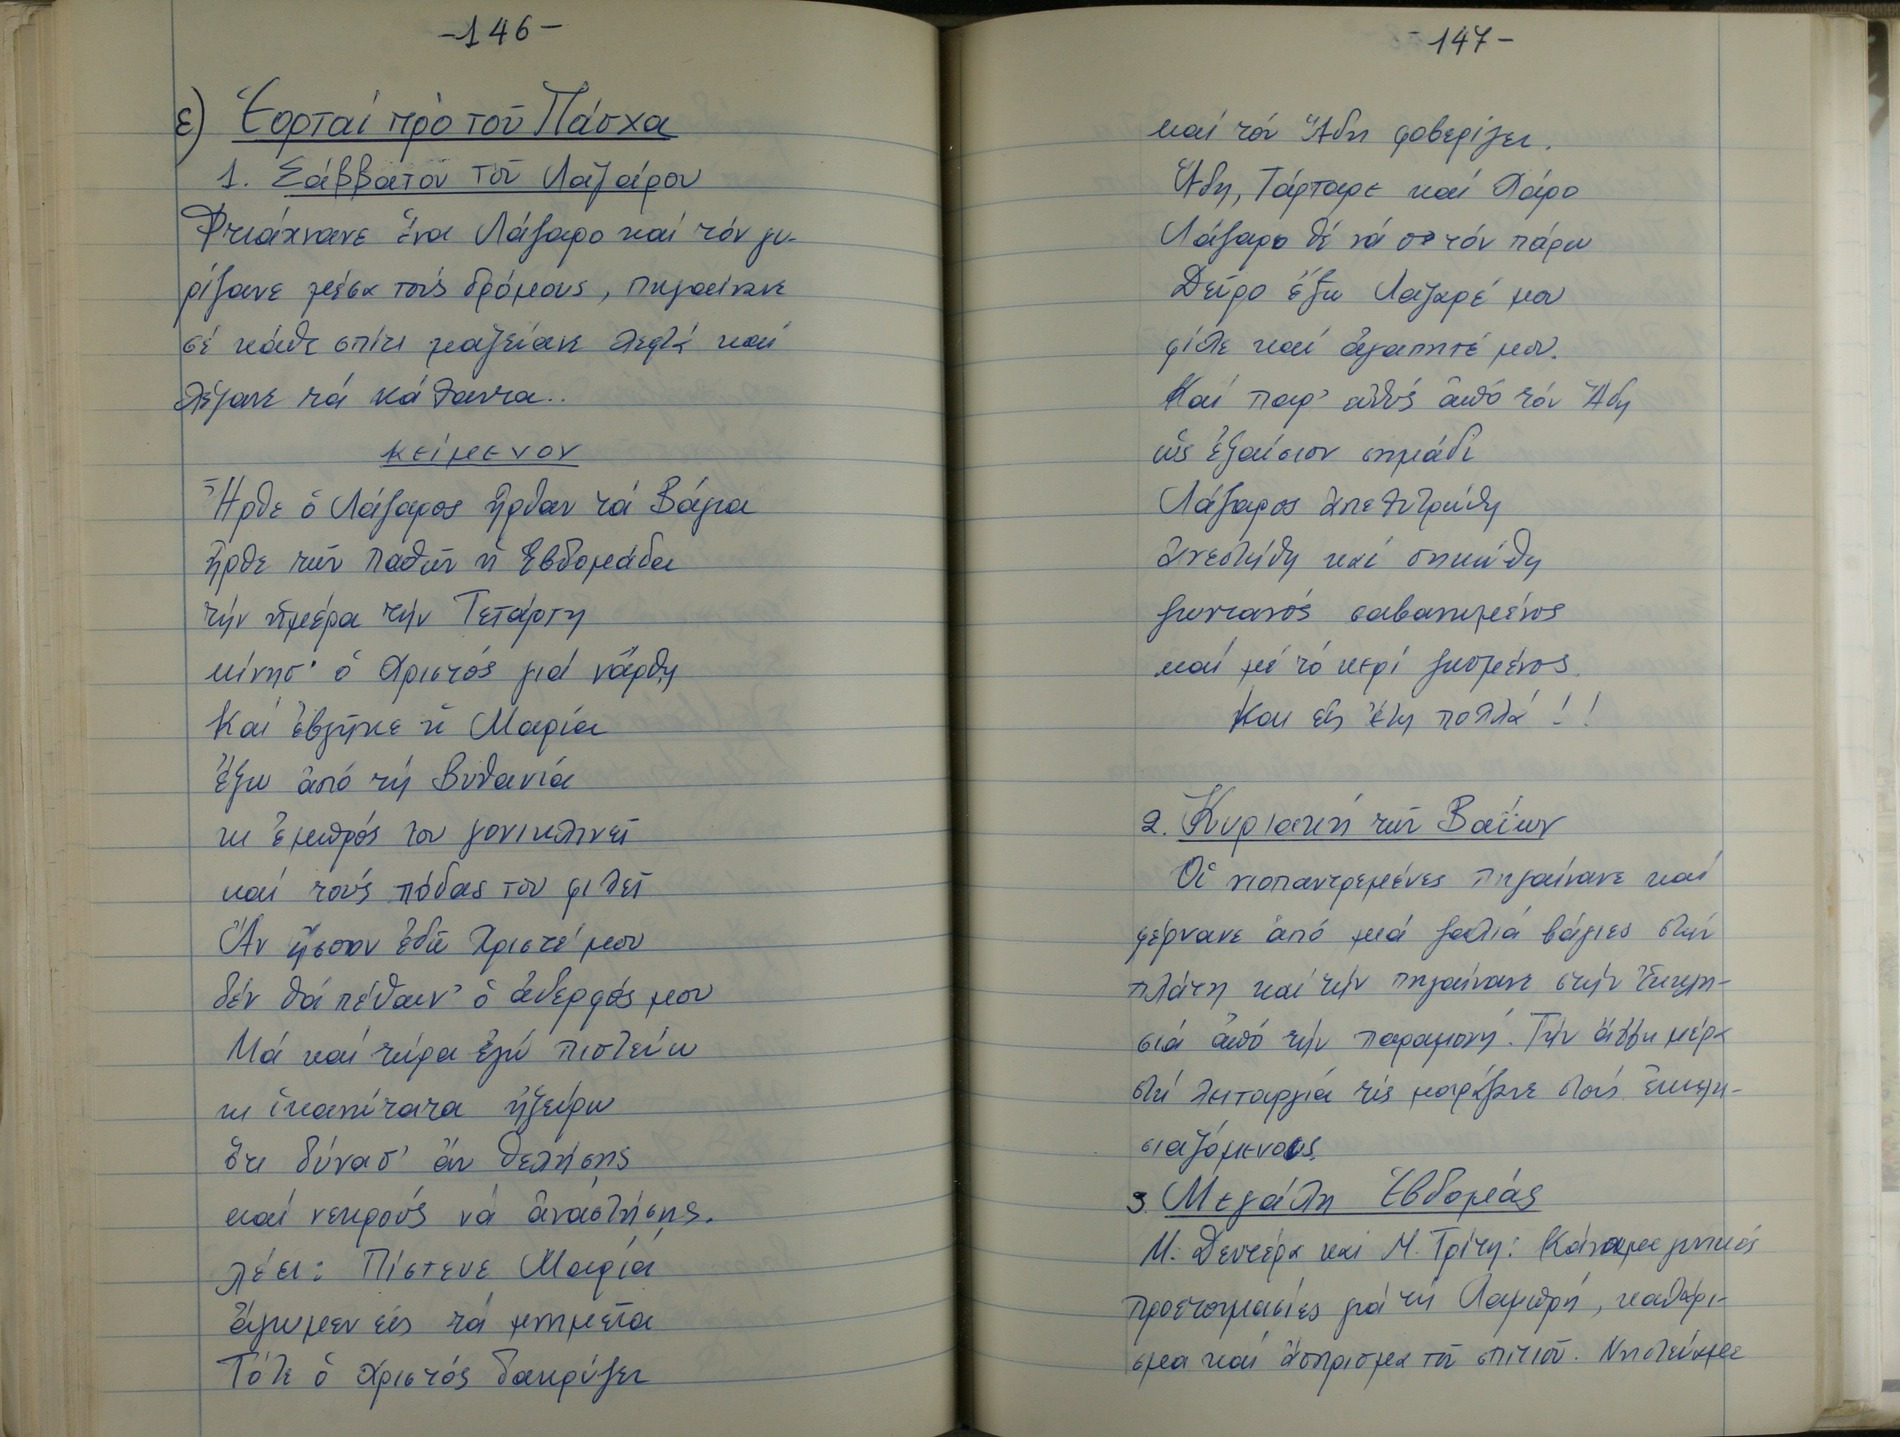 -146-
ε) Ἑορταί πρό τοῦ Πάσχα
1. Σάββατον τοῦ Λαζάρου
Φτιάχνανε ἕνα Λάζαρο καί τόν γυ-
ρίζανε μέσα τούς δρόμους, πηγαίνανε
σέ κάθε σπίτι μαζεύανε λεφτά καί
λέγανε τά κάλαντα..
κείμενον
Ἦρθε ὁ Λάζαρος ἦρθαν τά Βάγια
ἦρθε τῶν Παθῶν ἡ Ἑβδομάδα
τήν ἡμέρα τήν Τετάρτη
κίνησ' ὁ Χριστός γιά νἄρθῃ
Καί ἐβγῆκε ἡ Μαρία
ἔξω ἀπό τή Βυθανία
κι ἐμπρός του γονυκλινεῖ
καί τούς πόδας του φιλεῖ
Ἄν ἤσουν ἐδῶ Χριστέ μου
δέν θά πέθαιν' ὁ ἀδερφός μου
Μά καί τώρα ἐγώ πιστεύω
κι ἱκανώτατα ἠξεύρω
ὅτι δύνασ' ἄν θελήσῃς
καί νεκρούς νά ἀναστήσῃς.
λέει: Πίστευε Μαρία
ἄγωμεν εἰς τά μνημεῖα
Τότε ὁ Χριστός δακρύζει
-147-
καί τόν Ἅδη φοβερίζει.
Ἅδη, Τάρταρε καί Χάρο
Λάζαρο θέ νά σε τόν πάρω
Δεῦρο ἔξω Λάζαρέ μου
φίλε καί ἀγαπητέ μου.
Καί παρ' αὐθύς ἀπό τόν Ἅδη
ὡς ἐξαίσιον σημάδι
Λάζαρος ἀπελυτρώθη
ἀνεστήθη καί σηκώθη
ζωντανός σαβανωμένος
καί μέ τό κερί ζωσμένος.
Και εἰς ἔτη πολλά!!
2. Κυριακή τῶν Βαΐων
Οἱ νιοπαντρεμένες πηγαίνανε καί
φέρνανε ἀπό μιά ζαλιά βάγιες στήν
πλάτη καί τήν πηγαίνανε στήν Ἐκκλη-
σιά ἀπό τήν παραμονή. Τήν ἄλλη μέρα
στή λειτουργιά τίς μοιράζανε στούς ἐκκλη-
σιαζόμενους.
3. Μεγάλη Ἑβδομάς
Μ. Δευτέρα και Μ. Τρίτη: Κάναμε γενικές
προετοιμασίες γιά τή Λαμπρή, καθάρι-
σμα καί ἄσπρισμα τοῦ σπιτιοῦ. Νηστεύαμε